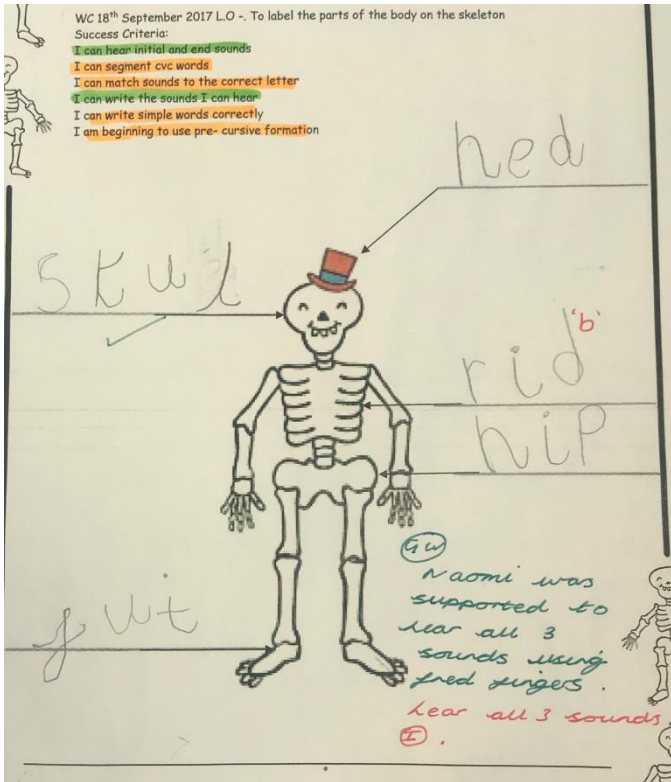 WC 18th September 2017 L.O -. To label the parts of the body on the skeleton
Success Criteria:
I can hear initial and end sounds
I can segment cvc words
I can match sounds to the correct letter
I can write the sounds I can hear
I can write simple words correctly
I am beginning to use pre- cursive formation
hed
skul
'b'
rid
hip
GW
Naomi was
supported to
hear all 3
sounds using
fred fingers.
hear all 3 sounds
I.
fut